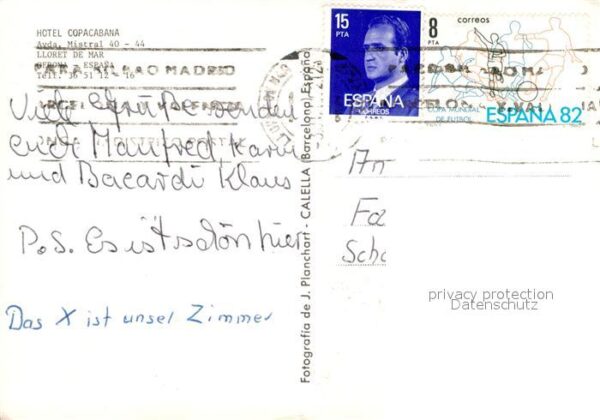 HOTEL COPACABANA
Avda. Mistral 40 - 44
LLORET DE MAR
GERONA - ESPAÑA
Telf: 36 51 12 - 16
Viele Grüße senden
euch Manfred, Karin
und Bacardi Klaus
P.S. Es ist schön hier
Das X ist unser Zimmer
Fotografía de J. Planchart - CALELLA (Barcelona) España
15
PTA
ESPAÑA
CORREOS
8
PTA
correos
COPA MUNDIAL
DE FUTBOL
ESPAÑA 82
BILBAO MADRID
An
Fa
Sch
privacy protection
Datenschutz